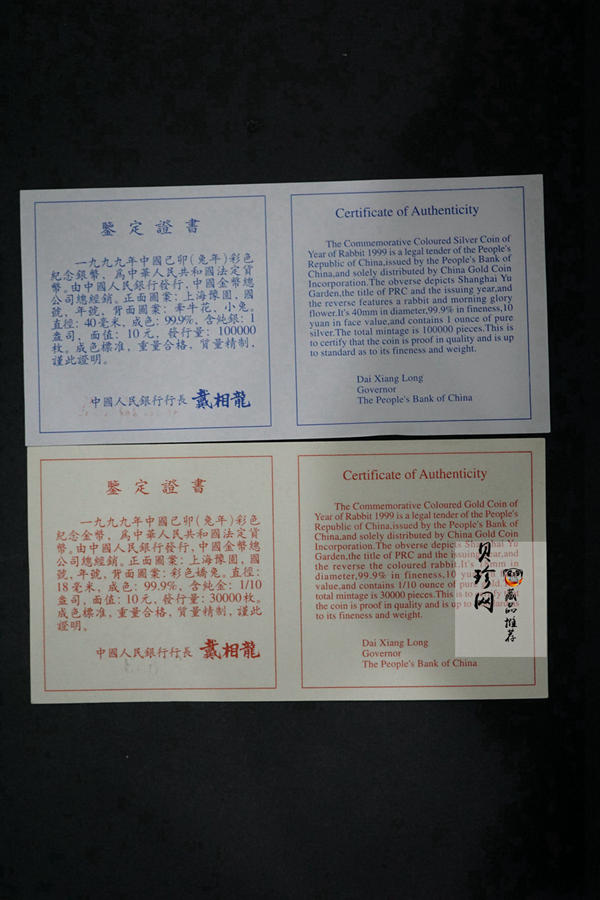 鑒定證書
一九九九年中國己卯(兔年)彩色
紀念銀幣，爲中華人民共和國法定貨
幣。由中國人民銀行發行，中國金幣總
公司總經銷。正面圖案：上海豫園，國
號，年號，背面圖案：牽牛花，小兔。
直徑：40毫米，成色：99.9%，含純銀：1
盎司，面值：10元，發行量：100000
枚。成色標准，重量合格，質量精制，
謹此證明。
中國人民銀行行長 戴相龍
Certificate of Authenticity
The Commemorative Coloured Silver Coin of
Year of Rabbit 1999 is a legal tender of the People's
Republic of China,issued by the People's Bank of
China,and solely distributed by China Gold Coin
Incorporation.The obverse depicts Shanghai Yu
Garden,the title of PRC and the issuing year,and
the reverse features a rabbit and morning glory
flower.It's 40mm in diameter,99.9% in fineness,10
yuan in face value,and contains 1 ounce of pure
silver.The total mintage is 100000 pieces.This is
to certify that the coin is proof in quality and is up
to standard as to its fineness and weight.
Dai Xiang Long
Governor
The People's Bank of China
鑒定證書
一九九九年中國己卯(兔年)彩色
紀念金幣，爲中華人民共和國法定貨
幣。由中國人民銀行發行，中國金幣總
公司總經銷。正面圖案：上海豫園，國
號，年號，背面圖案：彩色嬌兔。直徑：
18毫米，成色：99.9%，含純金：1/10
盎司，面值：10元，發行量：30000枚。
成色標准，重量合格，質量精制，謹此
證明。
中國人民銀行行長 戴相龍
Certificate of Authenticity
The Commemorative Coloured Gold Coin of
Year of Rabbit 1999 is a legal tender of the People's
Republic of China,issued by the People's Bank of
China,and solely distributed by China Gold Coin
Incorporation.The obverse depicts Shanghai Yu
Garden,the title of PRC and the issuing year,and
the reverse the coloured rabbit.It's in
diameter,99.9% in fineness,10 yuan
value,and contains 1/10 ounce of pure
total mintage is 30000 pieces.This is to certify that
the coin is proof in quality and is up to standard as
to its fineness and weight.
Dai Xiang Long
Governor
The People's Bank of China
贝珍网
藏品推荐